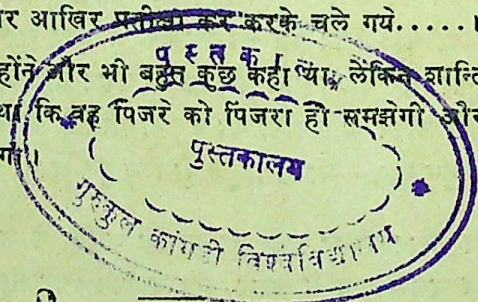 र आखिर प्रतीक्षा कर करके चले गये.....।
होंने और भी बहुत कुछ कहा था, लेकिन शान्ति
था कि वह पिंजरे को पिंजरा ही समझेगी और
गी।
पुस्तकालय
गुरुकुल कांगड़ी विश्वविद्यालय